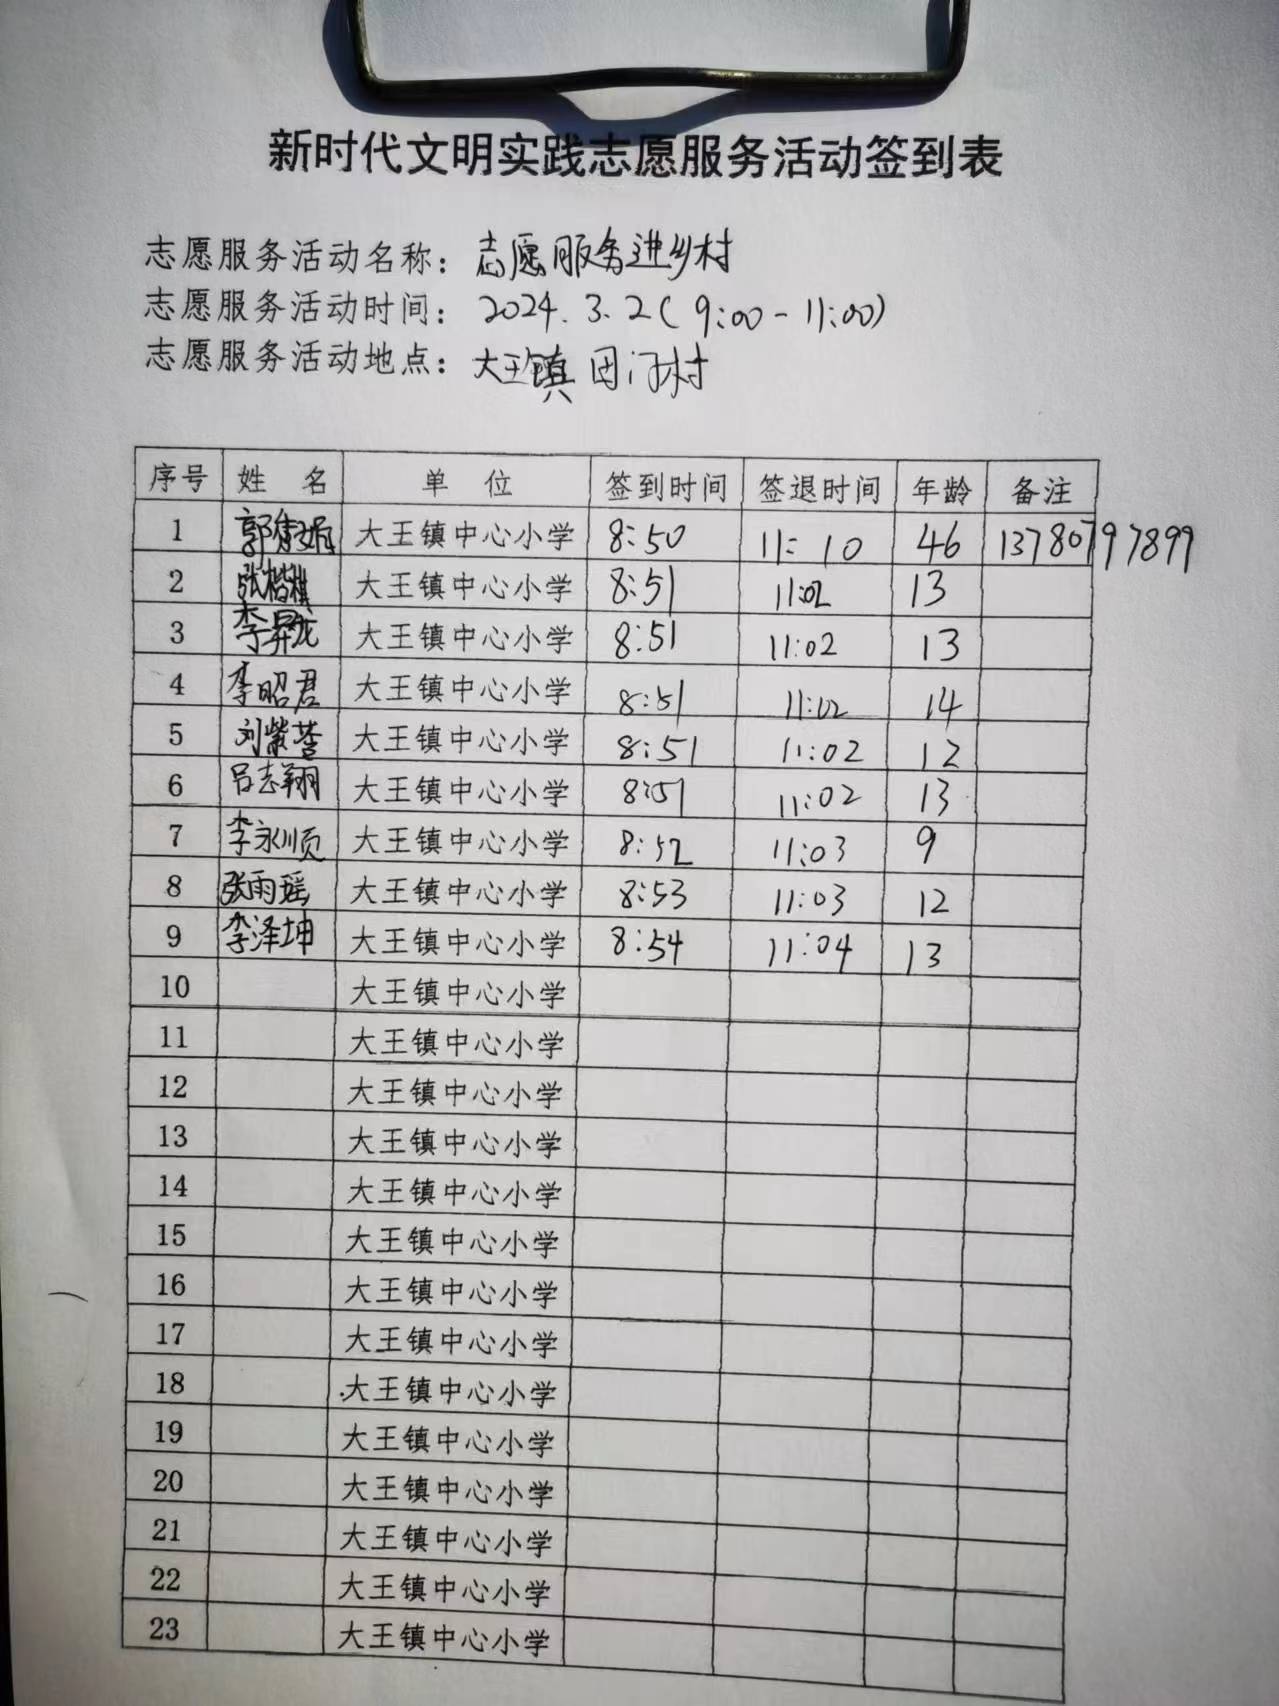 新时代文明实践志愿服务活动签到表
志愿服务活动名称：志愿服务进乡村
志愿服务活动时间：2024.3.2（9:00-11:00）
志愿服务活动地点：大王镇田门村
序号 姓名 单位 签到时间 签退时间 年龄 备注
1 郭 娟 大王镇中心小学 8:50 11:10 46 13780797899
2 张楷棋 大王镇中心小学 8:51 11:02 13
3 李昇龙 大王镇中心小学 8:51 11:02 13
4 李昭君 大王镇中心小学 8:51 11:02 14
5 刘紫 大王镇中心小学 8:51 11:02 12
6 吕志翔 大王镇中心小学 8:51 11:02 13
7 李永顺 大王镇中心小学 8:52 11:03 9
8 张雨瑶 大王镇中心小学 8:53 11:03 12
9 李泽坤 大王镇中心小学 8:54 11:04 13
10 大王镇中心小学
11 大王镇中心小学
12 大王镇中心小学
13 大王镇中心小学
14 大王镇中心小学
15 大王镇中心小学
16 大王镇中心小学
17 大王镇中心小学
18 大王镇中心小学
19 大王镇中心小学
20 大王镇中心小学
21 大王镇中心小学
22 大王镇中心小学
23 大王镇中心小学